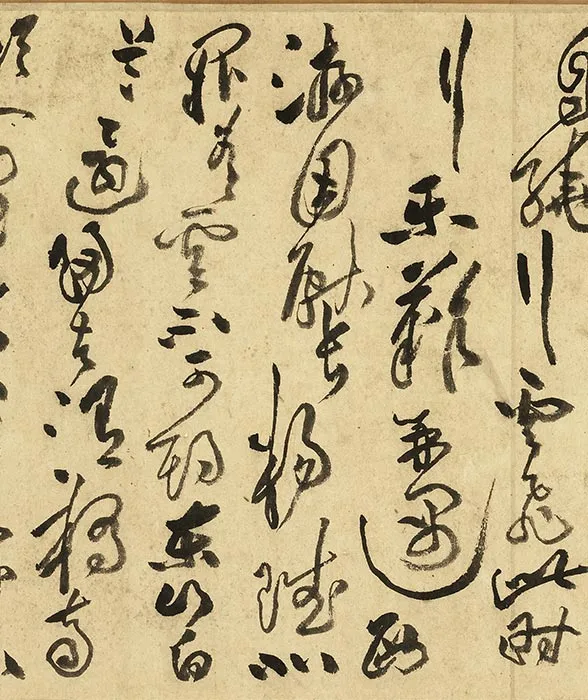 自繞行雲飛此時
行樂難再遇西
游因獻長楊賦北
闕青雲不可期東山白
首還歸去渭橋南